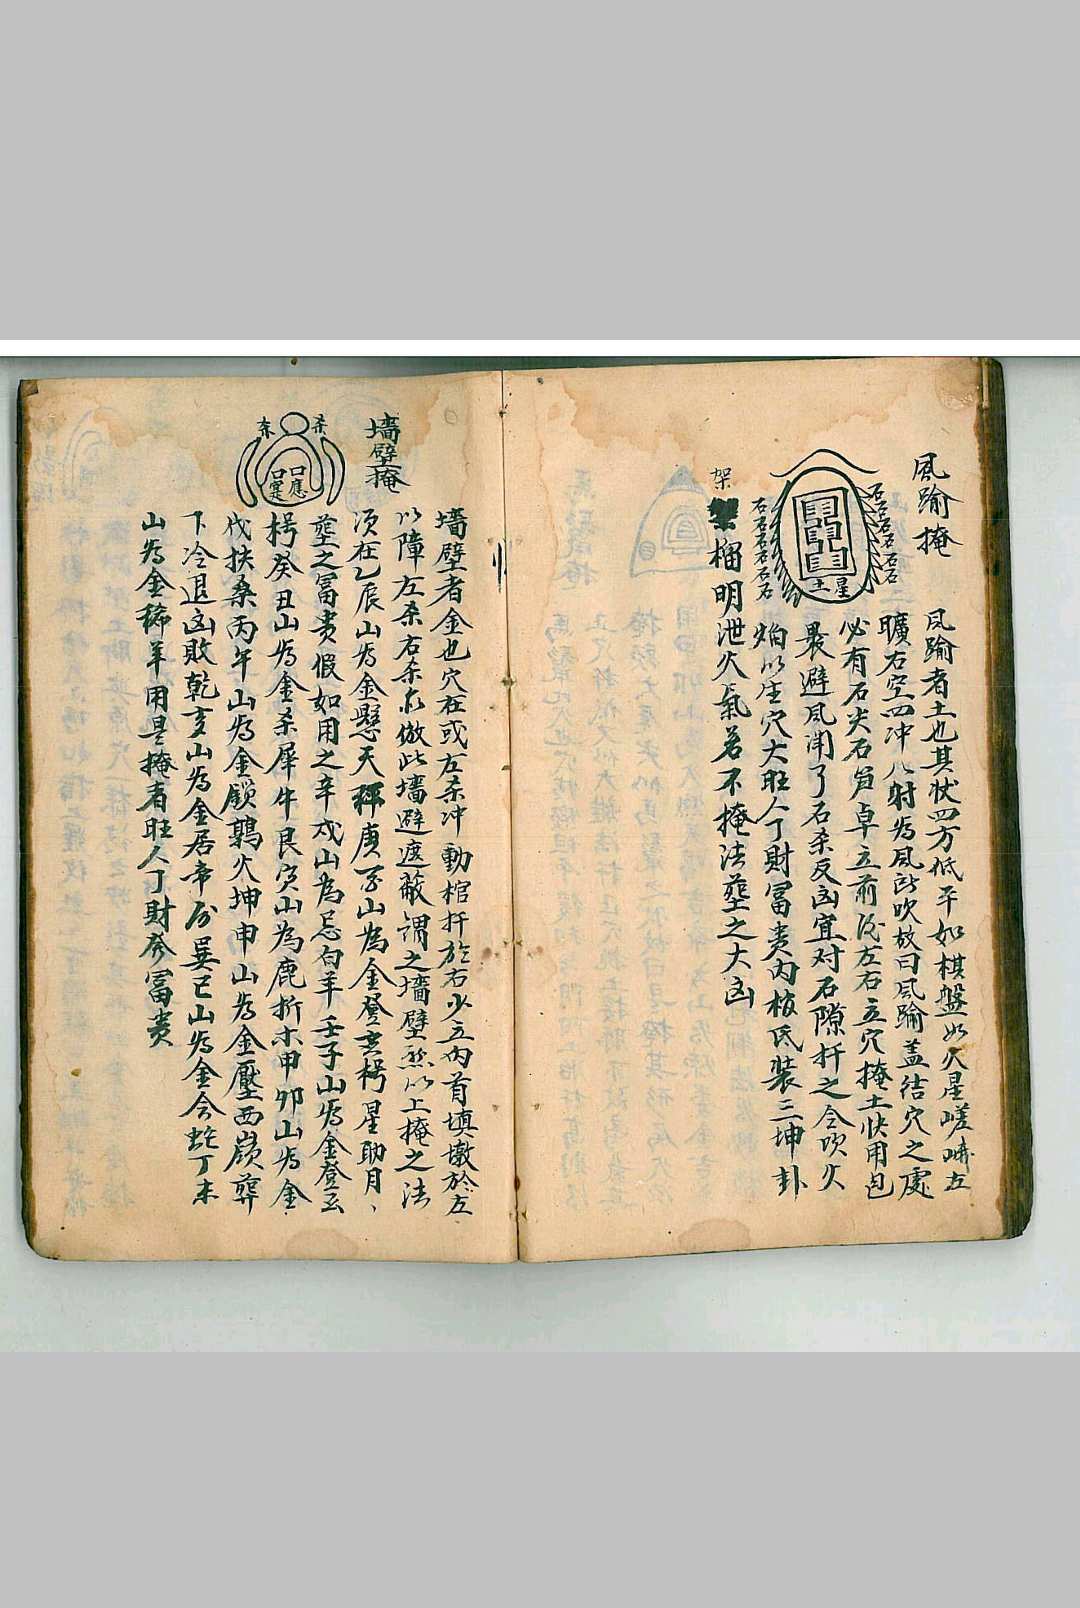 風踰掩
石石石石石石
石石石石石石
星
土
風踰者土也其状四方低平如棋盤如火星嵯峨左
曠右空四冲八射为風所吹故曰風踰盖結穴之處
必有石尖石笋卓立前後左右立穴掩土快用包
最避風閉了石杀反凶宜对石隙扦之令吹火
焰以生穴大旺人丁財冨贵内板底装三坤卦
架
榴明泄火氣若不掩法塟之大凶
墻壁掩
杀
杀
應
墻壁者金也穴在或左杀冲動棺扦於右少立内首填墩於左
以障左杀右杀亦倣此墻避遮蔽謂之墻壁然以上掩之法
须在乙辰山为金懸天秤庚酉山為金登玄枵星助月、
塟之冨贵假如用之辛戍山為忌白羊壬子山为金登玄
枵癸丑山为金杀犀牛艮寅山為鹿折木甲卯山为金
伐扶桑丙午山为金鎖鶉火坤申山为金壓西嶺葬
下冷退凶敗乾亥山为金居帝房巽巳山为金会蛇丁未
山为金稀羊用是掩者旺人丁財發冨贵